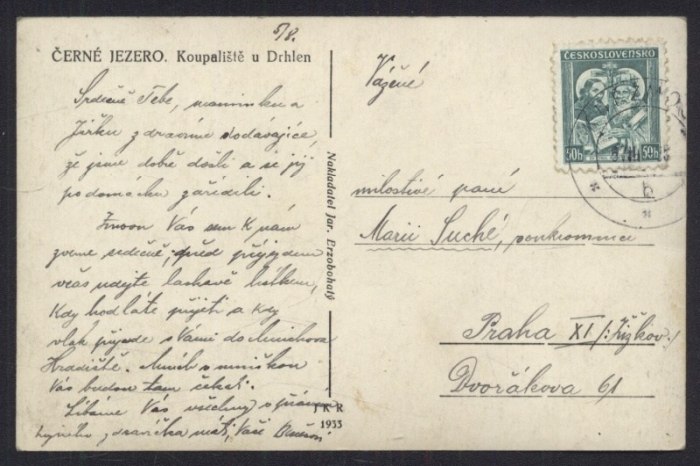 5/8.
ČERNÉ JEZERO. Koupaliště u Drhlen
Srdečně Tebe, maminku a
Jirku zdravíme dodávajíce,
že jsme dobře došli a se již
po domácku zařídili.
Znovu Vás sem k nám
zveme srdečně, před příjezdem
včas udejte laskavě lístkem,
kdy hodláte přijeti a kdy
vlak přijede s Vámi do Mnichova
Hradiště.
Vás budou tam čekati.
Líbáme Vás všechny s
Vaši
Nakladatel Jar. Erzobohatý
JKR
1933
Vážené
milostivé paní
Marii Suché,
Praha XI /: Žižkov :/
Dvořákova 61
ČESKOSLOVENSKO
50h 50h
b